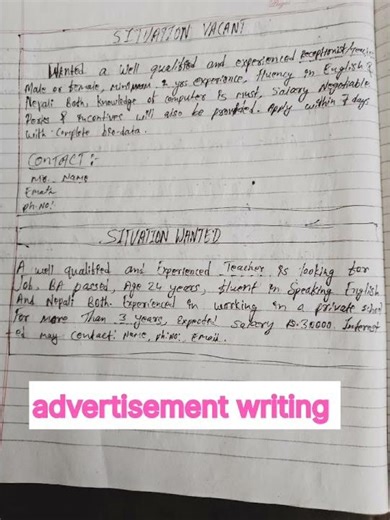 SITUATION VACANT
Wanted a well qualified and experienced Receptionist/
Male or female, minimum 2 yrs experience, fluency in English &
Nepali Both, knowledge of computer is must, Salary Negotiable
Perks & Incentives will also be provided. Apply within 7 days
with complete bio-data.
CONTACT:-
Mr. Name
Email
Ph.No:
SITUATION WANTED
A well qualified and Experienced Teacher is looking for
Job, BA passed, Age 24 years, fluent in Speaking English
And Nepali Both. Experienced in working in a private school
for more Than 3 years, Expected salary Rs.30000. Interest
ed may contact: Name, ph.no:, Email.
advertisement writing